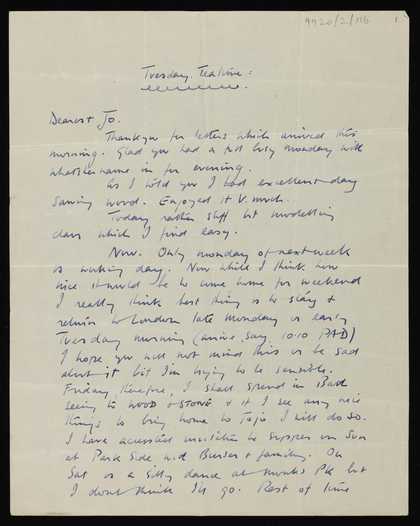 9920/2/116 1
Tuesday. Teatime:
Dearest Jo.
Thankyou for letters which arrived this
morning. Glad you had a full busy monday with
whatshername in for evening.
As I told you I had excellent day
sawing wood. Enjoyed it V. much.
Today rather stiff but modelling
class which I find easy.
Now. Only monday of next week
is working day. Now while I think how
nice it would be to come home for weekend
I really think best thing is to stay &
return to London late Monday or early
Tuesday morning (arrive say 10.10 PAD)
I hope you will not mind this or be sad
about it but I'm trying to be sensible.
Friday therefore, I shall spend in Bath
seeing to WOOD & STONE & if I see any nice
things to bring home to Jojo I will do so.
I have accepted invitation to supper on Sun
at Park Side with & family. On
Sat is a silly dance at Monks Pk but
I don't think I'll go. Rest of time